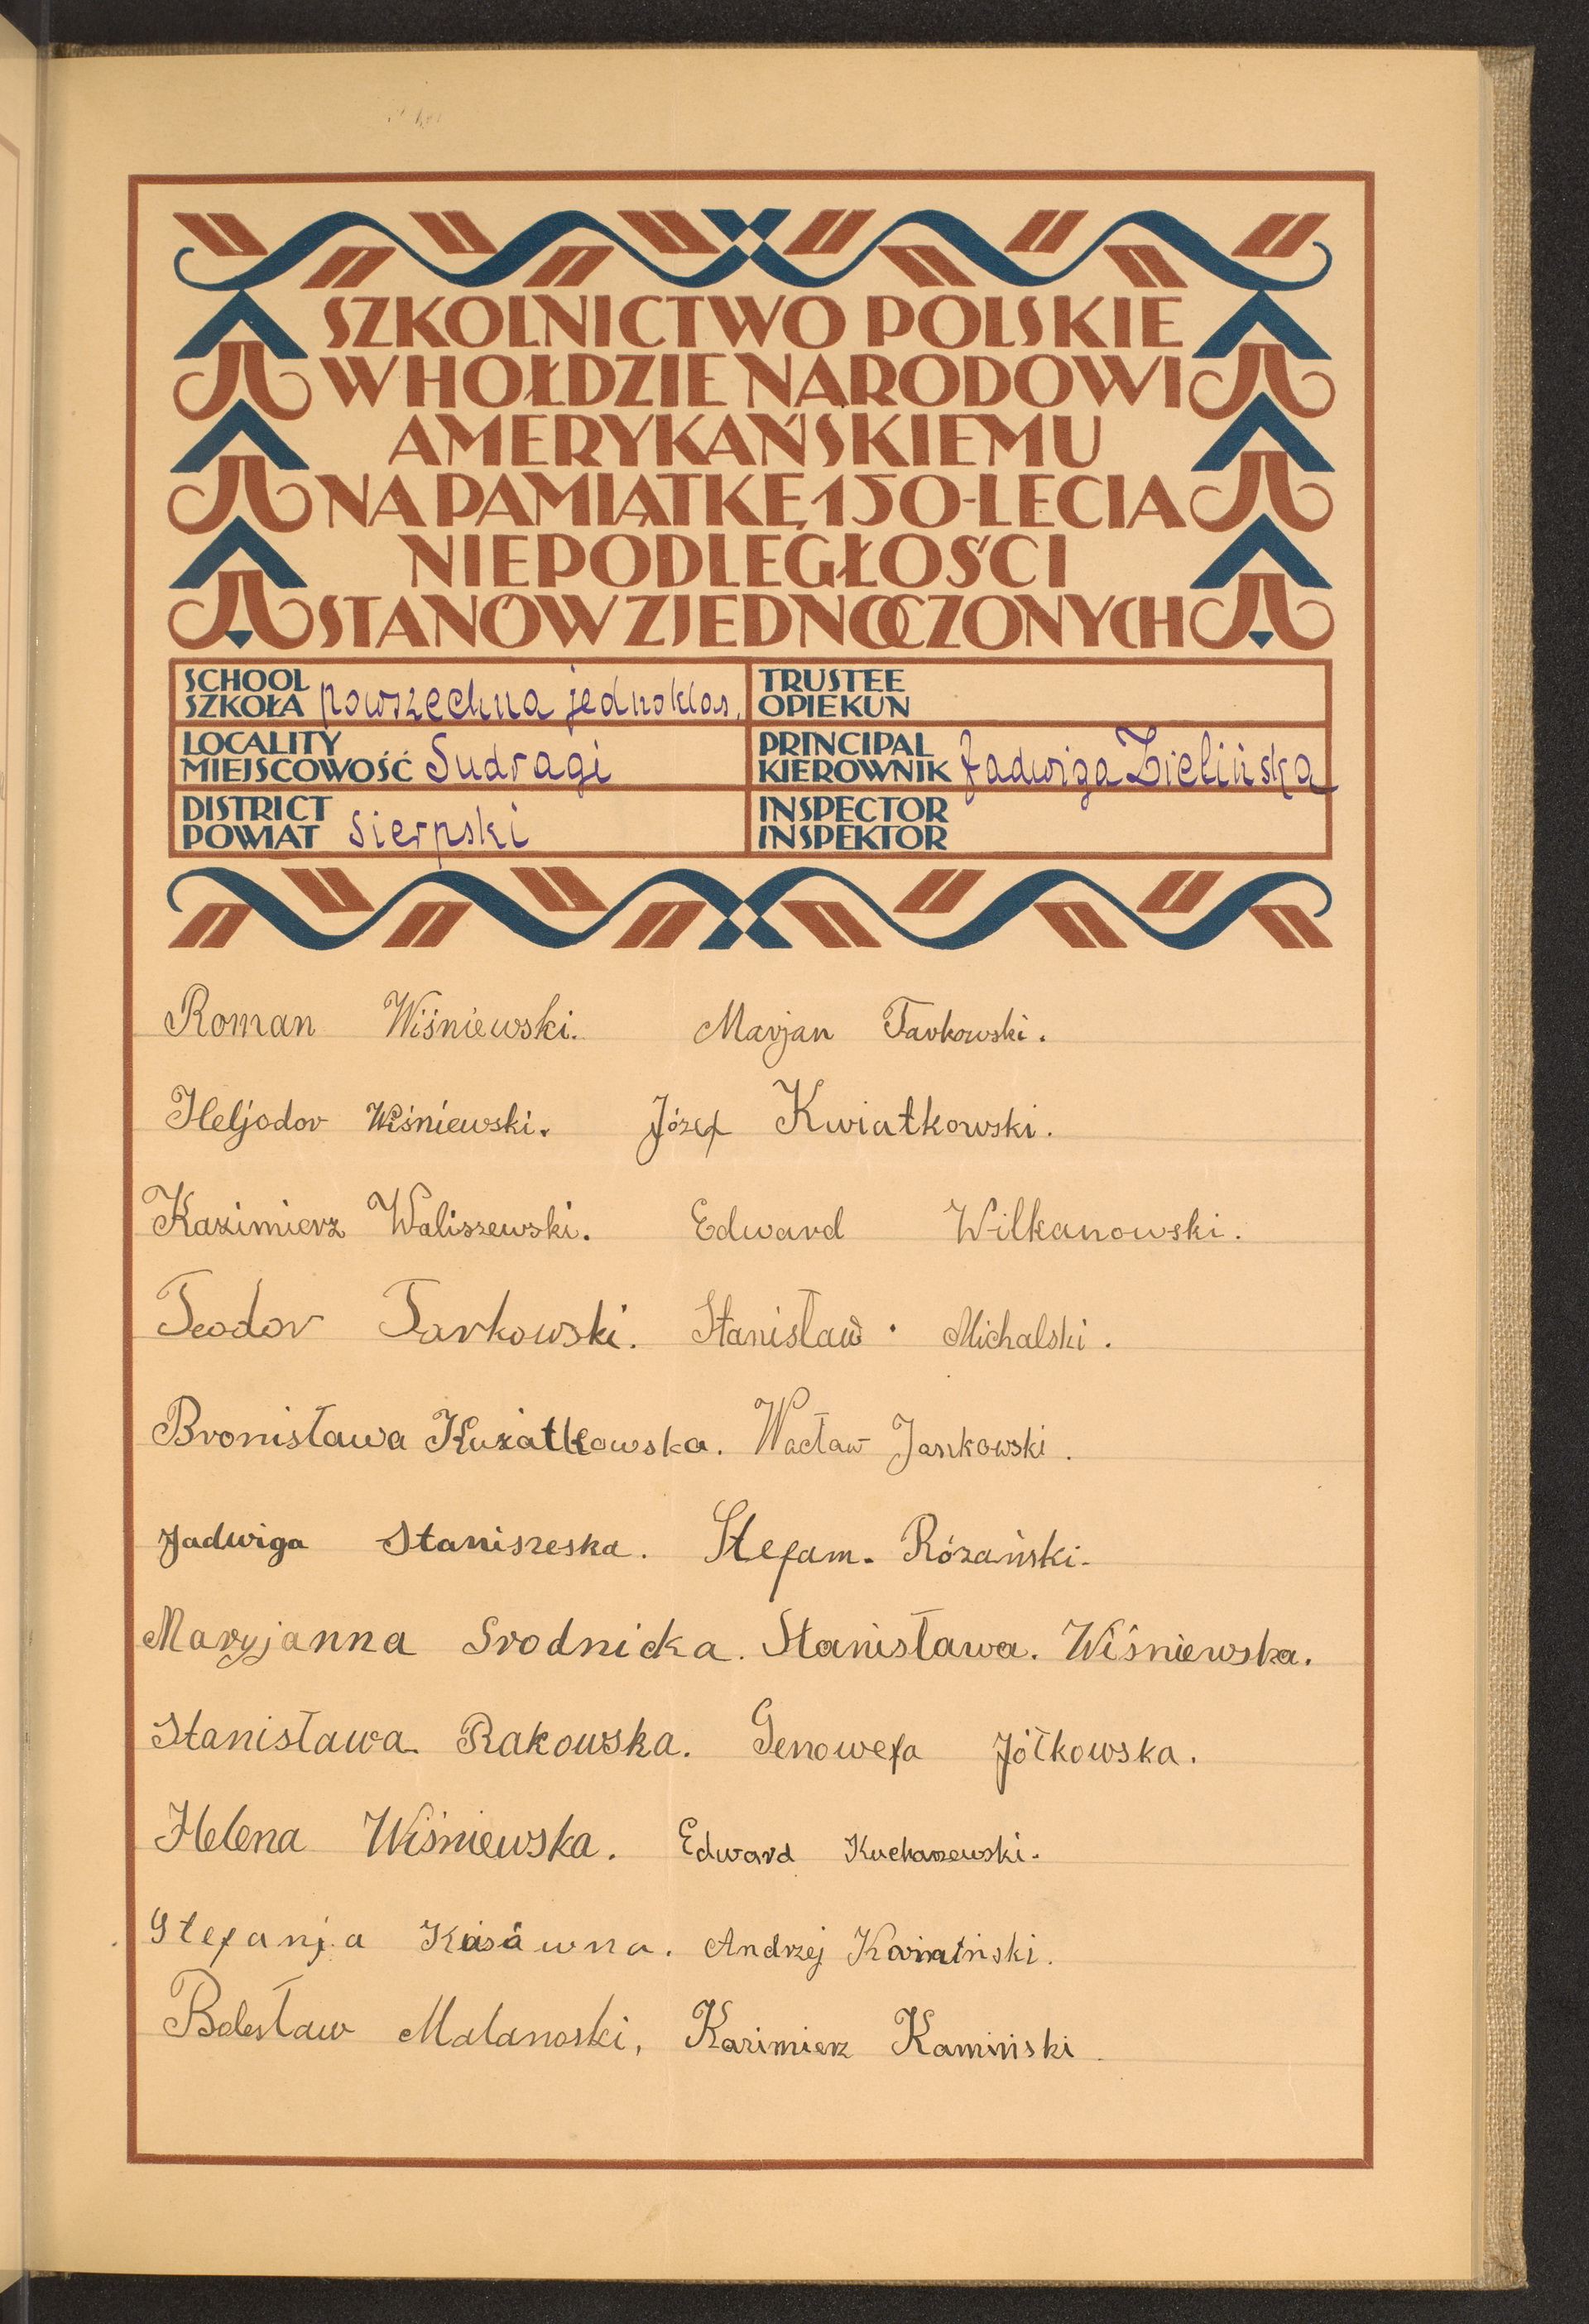 SZKOLNICTWO POLSKIE
W HOŁDZIE NARODOWI
AMERYKAŃSKIEMU
NA PAMIĄTKĘ 150-LECIA
NIEPODLEGŁOŚCI
STANÓW ZJEDNOCZONYCH
SCHOOL
SZKOŁA powszechna jednoklas.
TRUSTEE
OPIEKUN
LOCALITY
MIEJSCOWOŚĆ Sudragi
PRINCIPAL
KIEROWNIK Jadwiga Zielińska
DISTRICT
POWIAT Sierpski
INSPECTOR
INSPEKTOR
Roman Wiśniewski. Marjan Tarkowski.
Heljodor Wiśniewski. Józef Kwiatkowski.
Kazimierz Waliszewski. Edward Wilkanowski.
Teodor Tarkowski. Stanisław Michalski.
Bronisława Kwiatkowska. Wacław Jankowski.
Jadwiga Staniszeska. Stefam. Rózański.
Maryjanna Srodnicka. Stanisława. Wiśniewska.
Stanisława Rakowska. Genowefa Jółkowska.
Helena Wiśniewska. Edward
Stefanja Andrzej
Bolesław Malanoski, Kazimierz Kamiński.